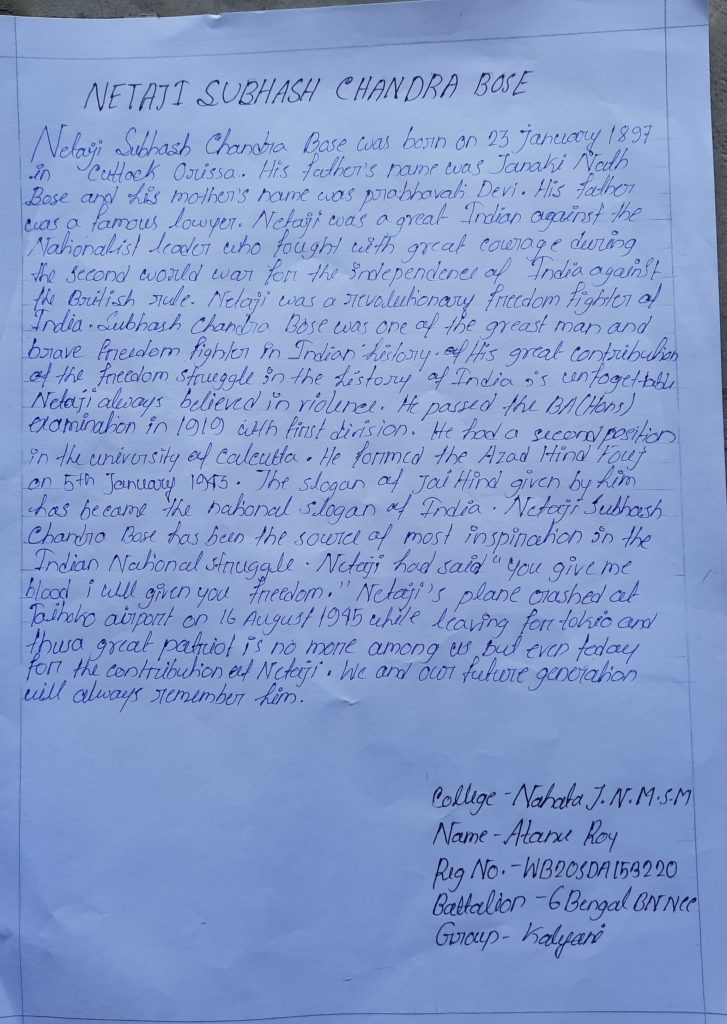 NETAJI SUBHASH CHANDRA BOSE
Netaji Subhash Chandra Bose was born on 23 january 1897
in Cuttock Orissa. His father's name was Janaki Nath
Bose and his mother's name was prabhavati Devi. His father
was a famous lowyer. Netaji was a great Indian against the
Nationalist leader who fought with great courage during
the second world war for the independence of India against
the British rule. Netaji was a revolutionary freedom fighter of
India. Subhash Chandra Bose was one of the greast man and
brave freedom fighter in Indian history. of His great contribution
of the freedom struggle in the history of India is unfogettable
Netaji always believed in violence. He passed the BA(Hons)
examination in 1919 with first division. He had a second position
in the university of Calcutta. He formed the Azad Hind Fouj
on 5th January 1945. The slogan of Jai Hind given by him
has became the national slogan of India. Netaji Subhash
Chandra Bose has been the source of most inspiration in the
Indian National struggle. Netaji had said "you give me
blood i will given you freedom." Netaji's plane crashed at
Taihoko airport on 16 August 1945 while leaving for tokio and
thusa great patriot is no more among us but even today
for the contribution of Netaji. We and our future generation
will always remember him.
College - Nahata J.N.M.S.M
Name - Atanu Roy
Reg No. - WB20SDA153220
Battalion - 6 Bengal BN NCC
Group - Kalyani